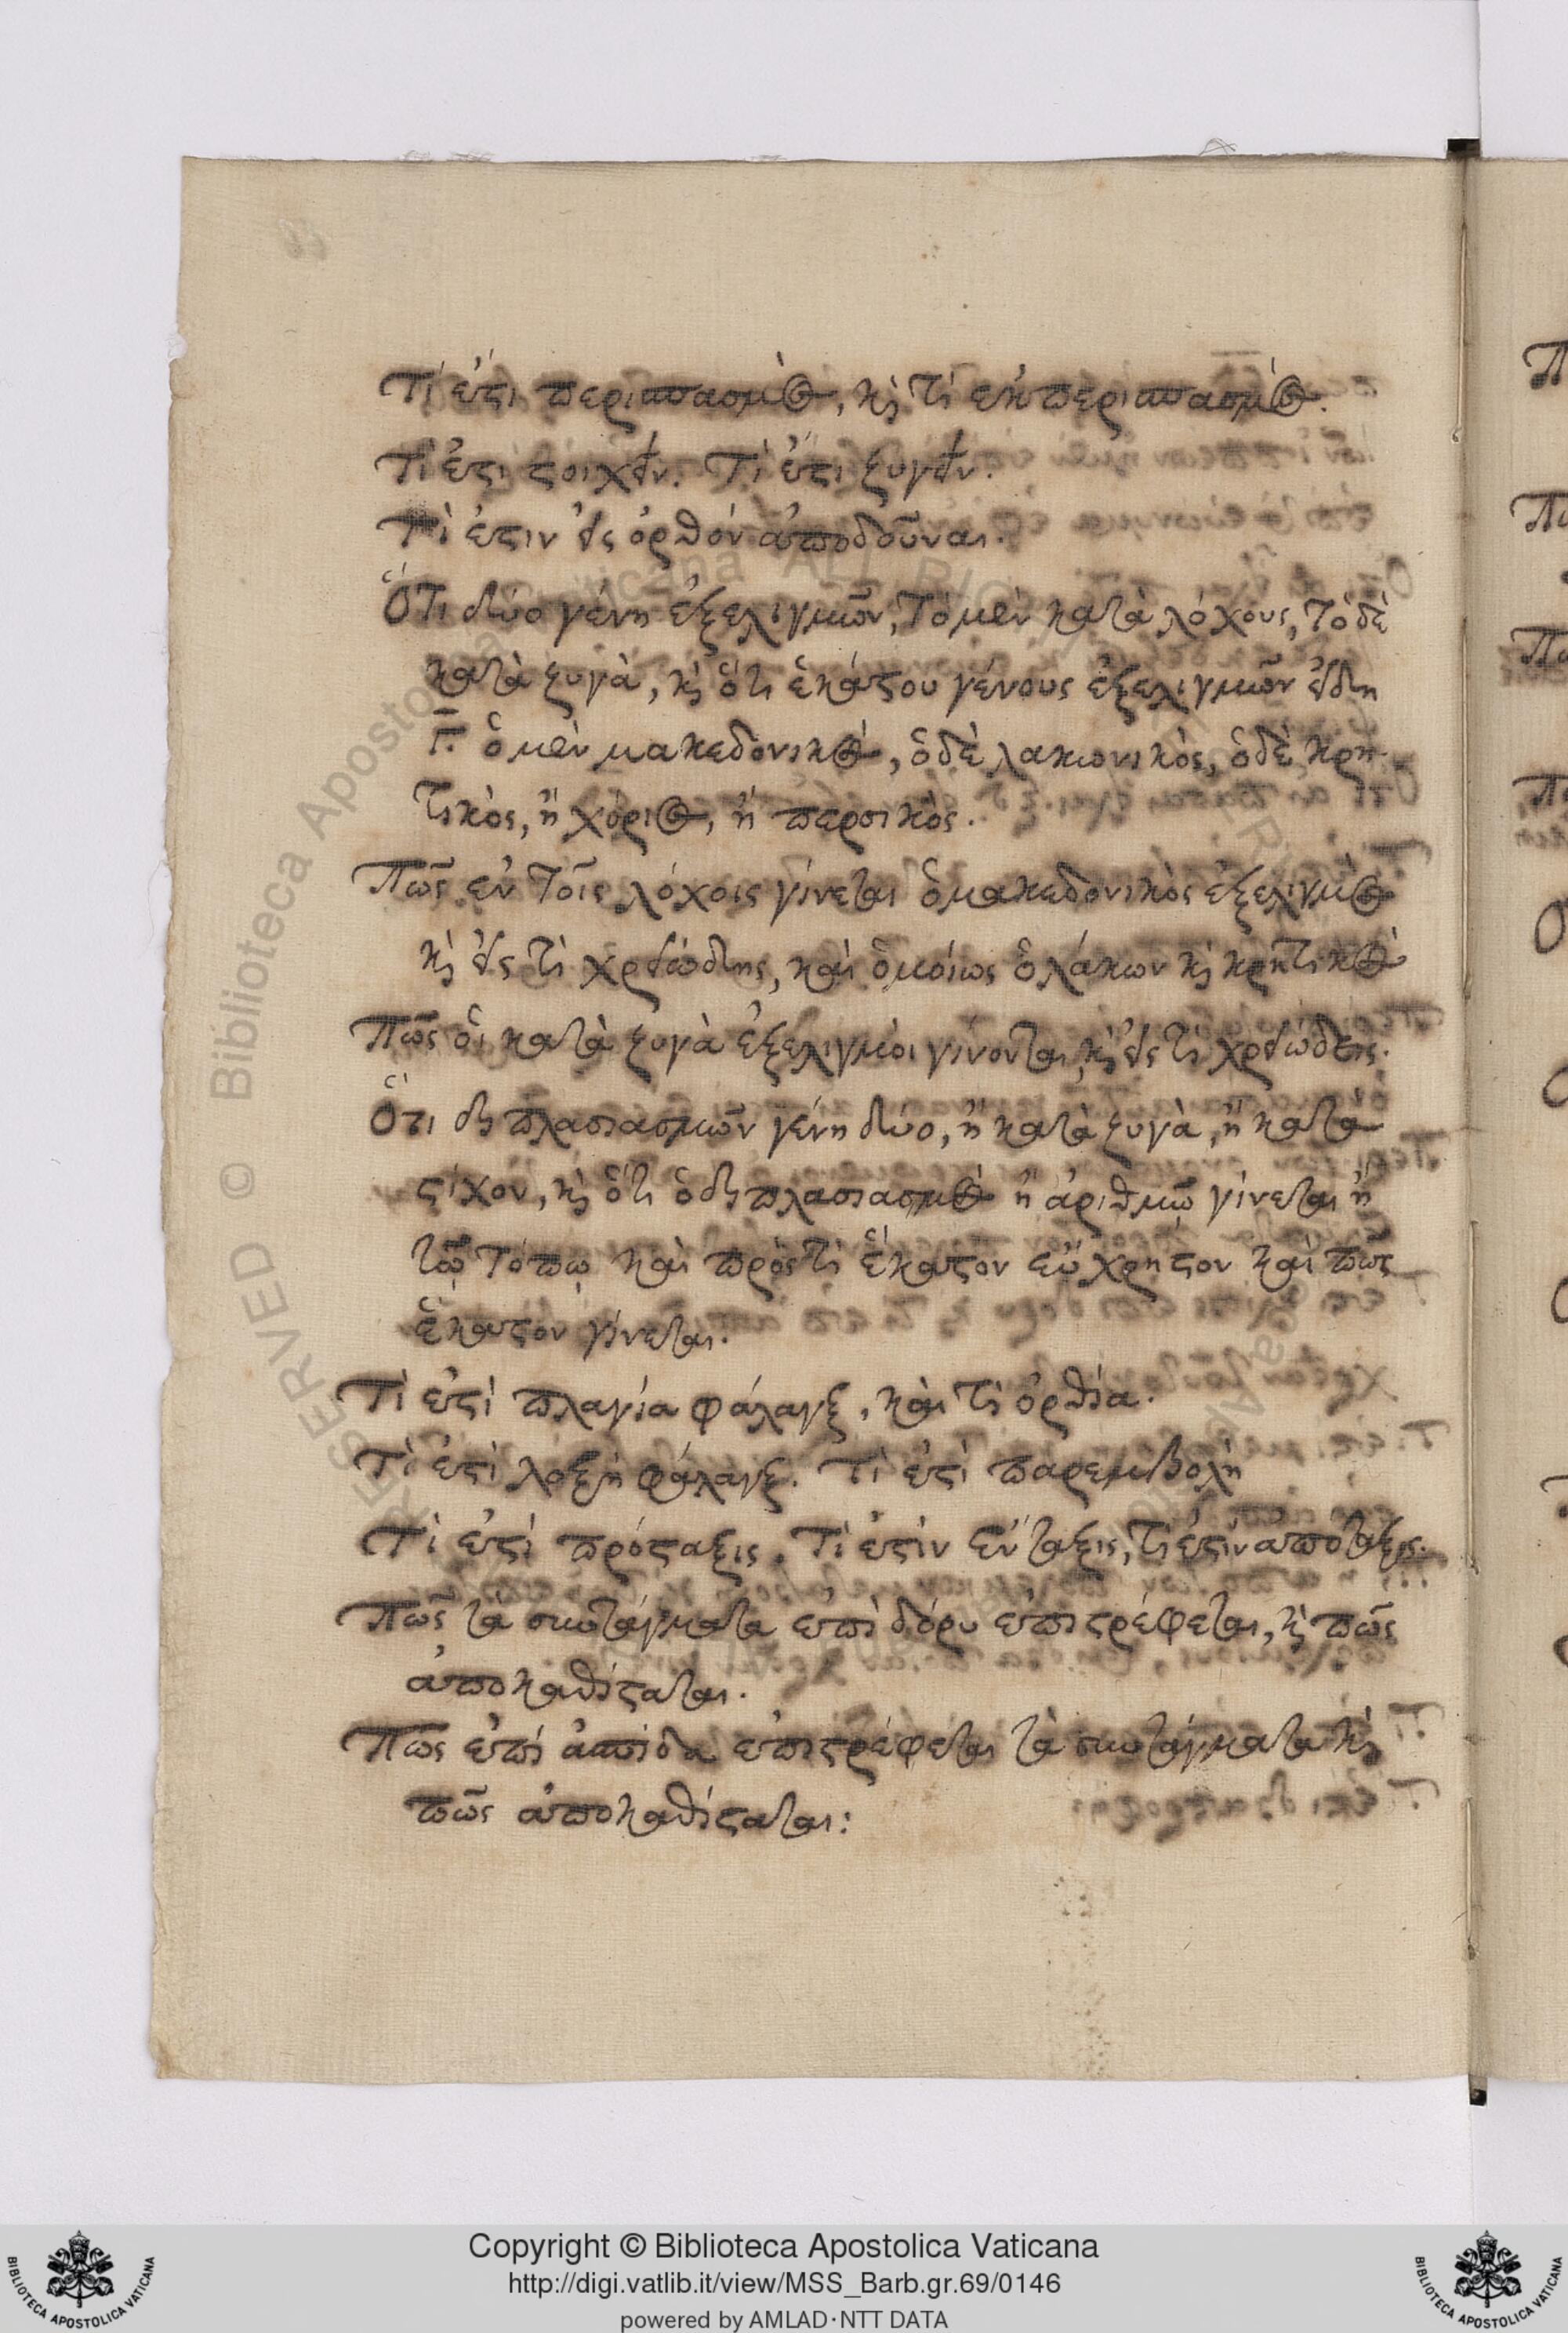 Τί ἐστι περισπασμὸς, καὶ τί ἐκπερισπασμός.
Τί ἐστι στοιχεῖν. Τί ἐστι ζυγεῖν.
Τὶ ἐστιν εἰς ὀρθόν ἀποδοῦναι.
Ὅτι δύο γένη ἐξελιγμῶν, τὸ μὲν κατὰ λόχους, τὸ δὲ
κατὰ ζυγὰ, καὶ ὅτι ἑκάστου γένους ἐξελιγμῶν εἴδη
Γ. ὁ μὲν μακεδονικὸς, ὁ δὲ λακωνικὸς, ὁ δὲ κρη-
τικὸς, ἢ χόριος, ἢ περσικὸς.
Πῶς ἐν τοῖς λόχοις γίνεται ὁ μακεδονικὸς ἐξελιγμὸς
καὶ εἰς τὶ χρειώδης, καὶ ὁμοίως ὁ λάκων καὶ κρητικὸς
Πῶς οἱ κατὰ ζυγὰ ἐξελιγμοὶ γίνονται, καὶ εἰς τὶ χρειώδεις.
Ὅτι διπλασιασμῶν γένη δύο, ἢ κατὰ ζυγὰ, ἢ κατὰ
στίχον, καὶ ὅτι ὁ διπλασιασμὸς ἢ ἀριθμῷ γίνεται ἢ
τῷ τόπῳ καὶ πρὸς τὶ ἕκαστον εὔχρηστον καὶ πῶς
ἕκαστον γίνεται.
Τὶ ἐστὶ πλαγία φάλαγξ, καὶ τὶ ὀρθία.
Τὶ ἐστὶ λοξὴ φάλαγξ. Τὶ ἐστὶ παρεμβολὴ
Τὶ ἐστὶ πρόσταξις. Τὶ ἐστὶν ἔνταξις, τὶ ἐστιν ἀπόταξις.
Πῶς τὰ συντάγματα ἐπὶ δόρυ ἐπιστρέφεται, καὶ πῶς
ἀποκαθίσταται.
Πως ἐπὶ ἀσπίδα ἐπιστρέφεται τὰ συντάγματα καὶ
πῶς ἀποκαθίσταται:
Copyright © Biblioteca Apostolica Vaticana
http://digi.vatlib.it/view/MSS_Barb.gr.69/0146
powered by AMLAD·NTT DATA